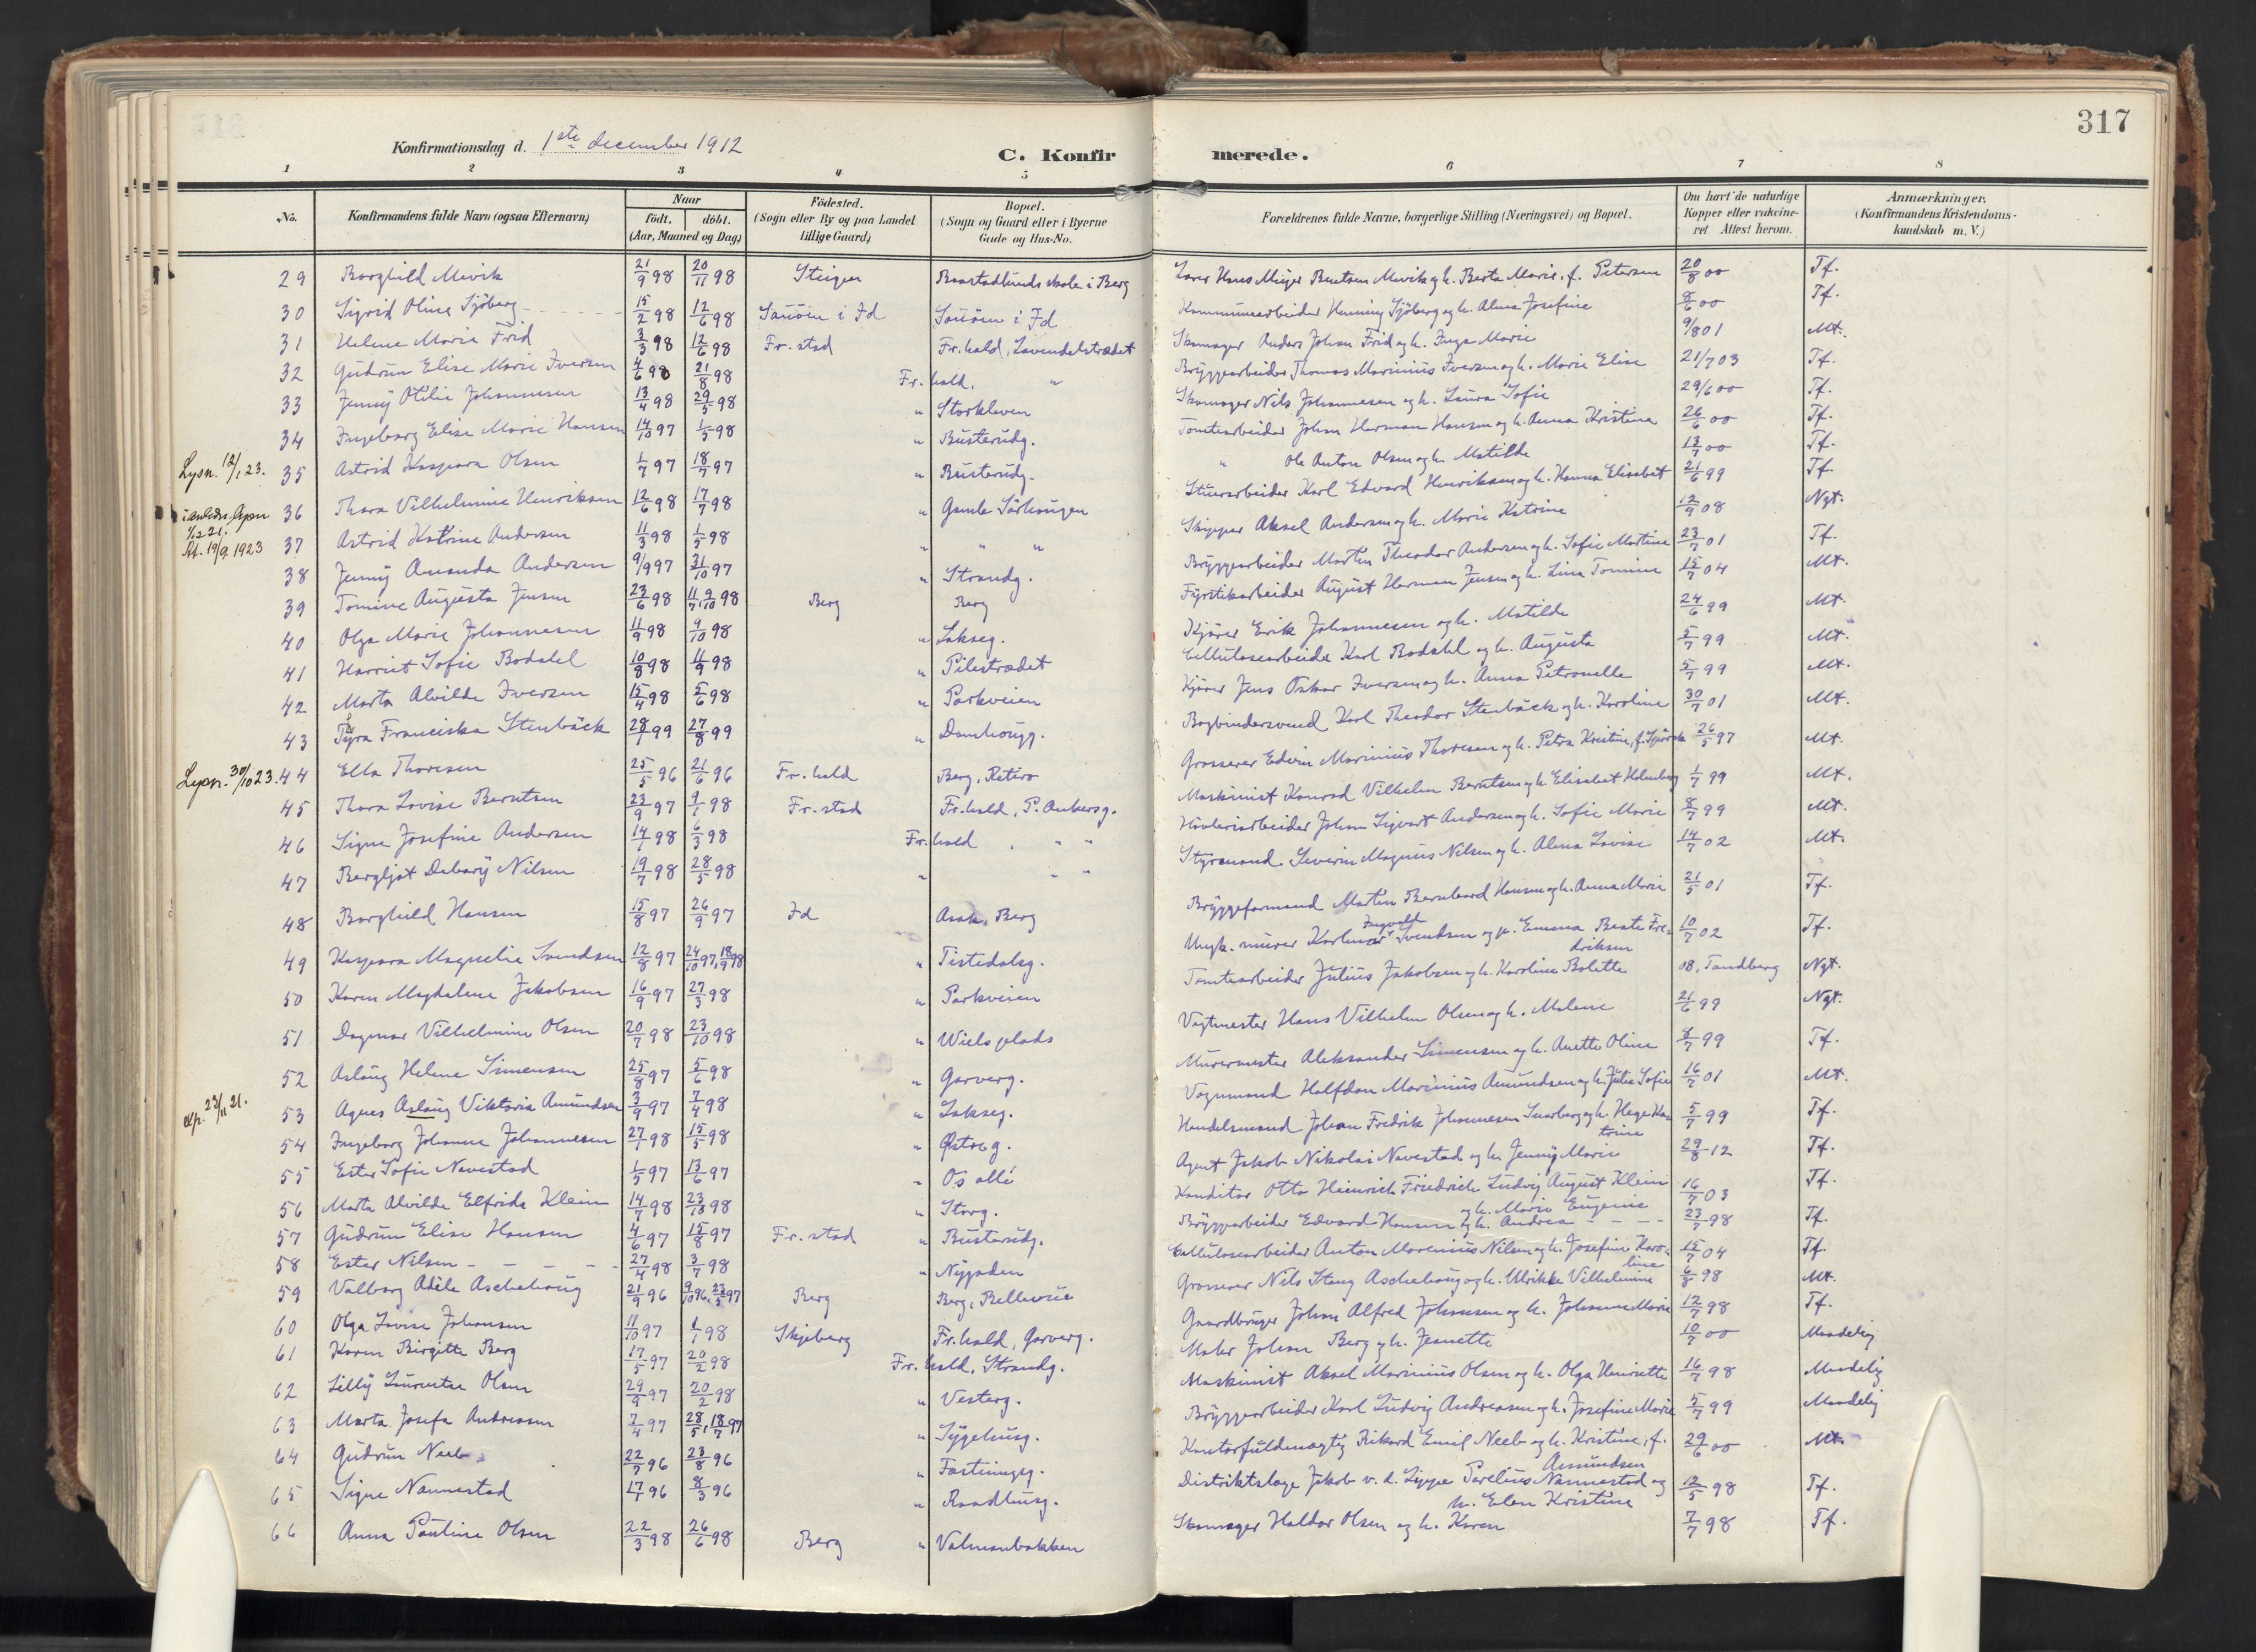 317
Konfirmationsdag d. 1ste december 1912
C. Konfirmerede.
1 2 3 4 5 6 7 8
No. Konfirmandens fulde Navn (ogsaa Efternavn) Naar födt. döbt. (Aar, Maaned og Dag) Födested. (Sogn eller By og paa Landet tillige Gaard) Bopæl. (Sogn og Gaard eller i Byerne Gade og Hus-No. Forældrenes fulde Navne, borgerlige Stilling (Næringsvei) og Bopæl. Om havt de naturlige Kopper eller vakcineret Attest herom. Anmærkninger. (Konfirmandens Kristendomskundskab m. V.)
29 Borghild Mevik 21/9 98 20/11 98 Steigen Baastadlunds skole i Berg Lærer Hans Meyer Bentsen Mevik og h. Berta Marie, f. Petersen 20/8 00 Tf.
30 Sigrid Oline Sjöberg 15/2 98 12/6 98 Sauöen i Id Sauöen i Id Kommunearbeider Henning Sjöberg og h. Alma Josefine 8/6 00 Tf.
31 Helene Marie Frid 3/3 98 12/6 98 Fr.stad Fr.hald, Lavendelstrædet Skomager Anders Johan Frid og h. Inga Marie 9/8 01 Mt.
32 Gudrun Elise Marie Iversen 4/6 98 21/8 98 Fr.hald. " Bryggearbeider Thomas Marinius Iversen og h. Marie Elise 21/7 03 Tf.
33 Jenny Otilie Johannesen 13/4 98 29/5 98 " Storkleven Skomager Nils Johannesen og h. Laura Sofie 29/6 00 Tf.
34 Ingeborg Elise Marie Hansen 14/10 97 1/5 98 " Busterudg. Tomtearbeider Johan Herman Hansen og h. Anna Kristina 26/6 00 Tf.
Lysn. 12/1 23. 35 Astrid Kaspara Olsen 1/7 97 18/7 97 " Busterudg. " Ole Anton Olsen og h. Matilde 13/7 00 Tf.
36 Thora Vilhelmine Henriksen 12/6 98 17/7 98 " Gamle Sörhaugen Stuerarbeider Karl Edvard Henriksen og h. Hanna Elisabet 21/6 99 Tf.
1/12 21.
At. 19/9 1923 37 Astrid Katrine Andersen 11/3 98 1/5 98 " " " Skipper Aksel Andersen og h. Marie Katrine 12/9 08 Ngt.
38 Jenny Amanda Andersen 9/9 97 31/10 97 " Strandg. Bryggearbeider Martin Theodor Andersen og h. Sofie Martine 23/7 01 Tf.
39 Tomine Augusta Jensen 23/6 98 11/7, 9/10 98 Berg Berg Fyrstikarbeider August Herman Jensen og h. Lina Tomine 15/7 04 Mt.
40 Olga Marie Johannesen 11/9 98 9/10 98 " Lakseg. Kjörer Erik Johannesen og h. Matilde 24/6 99 Mt.
41 Harriet Sofie Bodahl 10/8 98 11/9 98 " Pilestrædet Cellulosearbeider Karl Bodahl og h. Augusta 5/7 99 Mt.
42 Marta Alvilde Iversen 15/4 98 5/6 98 " Parkveien Kjörer Jens Oskar Iversen og h. Anna Petronelle 5/7 99 Mt.
43 Tyra Franciska Stenbäck 28/1 99 27/8 99 " Damhaugg. Bogbindersvend Karl Theodor Stenbäck og h. Karoline 30/7 01 Mt.
Lysn. 30/10 23. 44 Ella Thoresen 25/5 96 21/6 96 Fr.hald Berg, Retiro Grosserer Edvin Marinius Thoresen og h. Petra Kristine, f. 26/5 97 Mt.
45 Thora Lovise Berntsen 23/9 97 9/1 98 Fr.stad Fr.hald, P. Ankersg. Maskinist Konrad Vilhelm Berntsen og h. Elisabet Holmberg 1/7 99 Mt.
46 Signe Josefine Andersen 14/1 98 6/3 98 Fr.hald , " " Hövleriarbeider Johan Sigvart Andersen og h. Sofie Marie 8/7 99 Mt.
47 Bergljot Debory Nilsen 19/7 98 28/5 98 " " " Styrmand Severin Magnus Nilsen og h. Alma Lovise 14/7 02 Mt.
48 Borghild Hansen 15/8 97 26/9 97 Id Asak, Berg Bryggeformand Martin Bernhard Hansen og h. Anna Marie 21/5 01 Tf.
49 Kaspara Magnelie Svendsen 12/8 97 24/10 97, 18/9 98 " Tistedalsg. Ungk. murer Karlmar Ingvald Svendsen og p. Emma Beate Fredriksen 10/7 02 Tf.
50 Karen Magdalene Jakobsen 16/9 97 27/3 98 " Parkveien Tomtearbeider Julius Jakobsen og h. Karoline Bolette 08, Tandberg Ngt.
51 Dagmar Vilhelmine Olsen 20/7 98 23/10 98 " Wiels plads Vegtmester Hans Vilhelm Olsen og h. Malene 21/6 99 Ngt.
52 Aslaug Helene Simensen 25/8 97 5/6 98 " Garverg. Murermester Aleksander Simensen og h. Anette Oline 8/7 99 Tf.
exp. 23/11 21. 53 Agnes Aslaug Viktoria Amundsen 3/9 97 7/4 98 " Lakseg. Vognmand Halfdan Marinius Amundsen og h. Julie Sofie 16/7 01 Mt.
54 Ingeborg Johanne Johannesen 27/1 98 15/5 98 " Østreg. Handelsmand Johan Fredrik Johannesen Snarberg og h. Hega Katrine 5/7 99 Tf.
55 Ester Sofie Navestad 1/5 97 13/6 97 " Os allé Agent Jakob Nikolai Navestad og h. Jenny Marie 29/8 12 Tf.
56 Marta Alvilde Elfrida Klein 14/7 98 23/10 98 " Storg. Konditor Otto Heinrich Friedrich Ludvig August Klein og h. Marie Eugenie 16/7 03 Tf.
57 Gudrun Elise Hansen 4/6 97 15/8 97 Fr.stad " Busterudg. Bryggearbeider Edvard Hansen og h. Andrea 23/7 98 Tf.
58 Ester Nilsen 27/4 98 3/7 98 " Nygaden Cellulosearbeider Anton Marenius Nilsen og h. Josefine Karoline 15/7 04 Tf.
59 Valborg Adele Aschehoug 21/9 96 9/10 96, 23/5 97 Berg Berg, Bellevue Grosserer Nils Stang Aschehoug og h. Ulrikke Vilhelmine 6/8 98 Mt.
60 Olga Lovise Johansen 11/10 97 1/1 98 Skjeberg Fr.hald, Garverg. Gaardbruger Johan Alfred Johansen og h. Johanne Marie 12/7 98 Tf.
61 Karen Birgitte Berg 17/5 97 20/2 98 Fr.hald, Strandg. Maler Johan Berg og h. Jeanette 10/7 00 Maadelig
62 Lilly Laurentse Olsen 29/9 97 20/2 98 " Vesterg. Maskinist Aksel Marinius Olsen og h. Olga Henriette 16/7 98 Maadelig
63 Marta Josefa Andreasen 7/4 97 28/5, 18/7 97 " Sygehusg. Bryggearbeider Karl Ludvig Andreasen og h. Josefine Marie 5/7 99 Maadelig
64 Gudrun Neeb 22/7 96 23/8 96 " Fæstningsg. Kontorfuldmægtig Rikard Emil Neeb og h. Kristine, f. Amundsen 29/6 00 Mt.
65 Signe Nannestad 17/1 96 8/3 96 " Raadhusg. Distriktslæge Jakob v. d. Lippe Parelius Nannestad og h. Elen Kristine 12/5 98 Tf.
66 Anna Pauline Olsen 22/3 98 26/6 98 Berg " Valmanbakken Skomager Haldor Olsen og h. Karen 7/7 98 Tf.